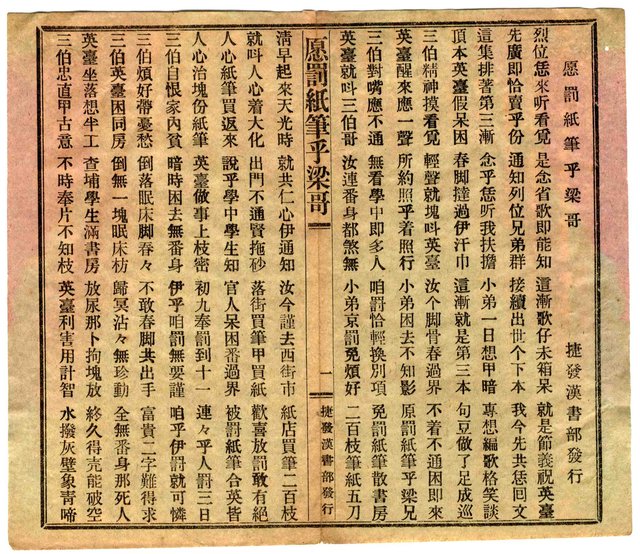 愿罰紙筆乎梁哥 捷發漢書部發行
烈位恁來听看覓 是念省歌即能知 這漸歌仔未箱呆 就是節義祝英臺
先廣即恰賣乎份 通知列位兄弟群 接續出世个下本 我今先共恁回文
這集排著第三漸 念乎恁听我扶擔 小弟一日想甲暗 專想編歌格笑談
頂本英臺假呆困 春脚撻過伊汗巾 這漸就是第三本 句豆做了足成巡
三伯精神摸看覓 輕聲就塊呌英臺 汝个脚骨春過界 不着不通困即來
英臺醒來應一聲 所約照乎着照行 小弟困去不知影 原罰紙筆乎梁兄
三伯對嘴應不通 無看學中即多人 咱罰恰輕換別項 免罰紙筆散書房
英臺就呌三伯哥 汝連番身都煞無 小弟京罰免煩好 二百枝筆紙五刀
愿罰紙筆乎梁哥 一 捷發漢書部發行
清早起來天光時 就共仁心伊通知 汝今謹去西街市 紙店買筆二百枝
就呌人心着大化 出門不通賢拖砂 落街買筆甲買紙 歡喜放罰敢有絕
人心紙筆買返來 說乎學中學生知 官人呆困番過界 被罰紙筆合英皆
人心治塊份紙筆 英臺做事上枝密 初九奉罰到十一 連々乎人罰三日
三伯自恨家內貧 暗時困去無番身 伊乎咱罰無要謹 咱乎伊罰就可憐
三伯煩好帶憂愁 倒落眠床脚春々 不敢春脚共出手 富貴二字難得求
三伯英臺困同房 倒無一塊眠床枋 歸冥沾々無珍動 全無番身那死人
英臺坐落想半工 查埔學生滿書房 放尿那卜拘塊放 終久得壳能破空
三伯忠直甲古意 不時奉片不知枝 英臺利害用計智 水撥灰壁象靑啼